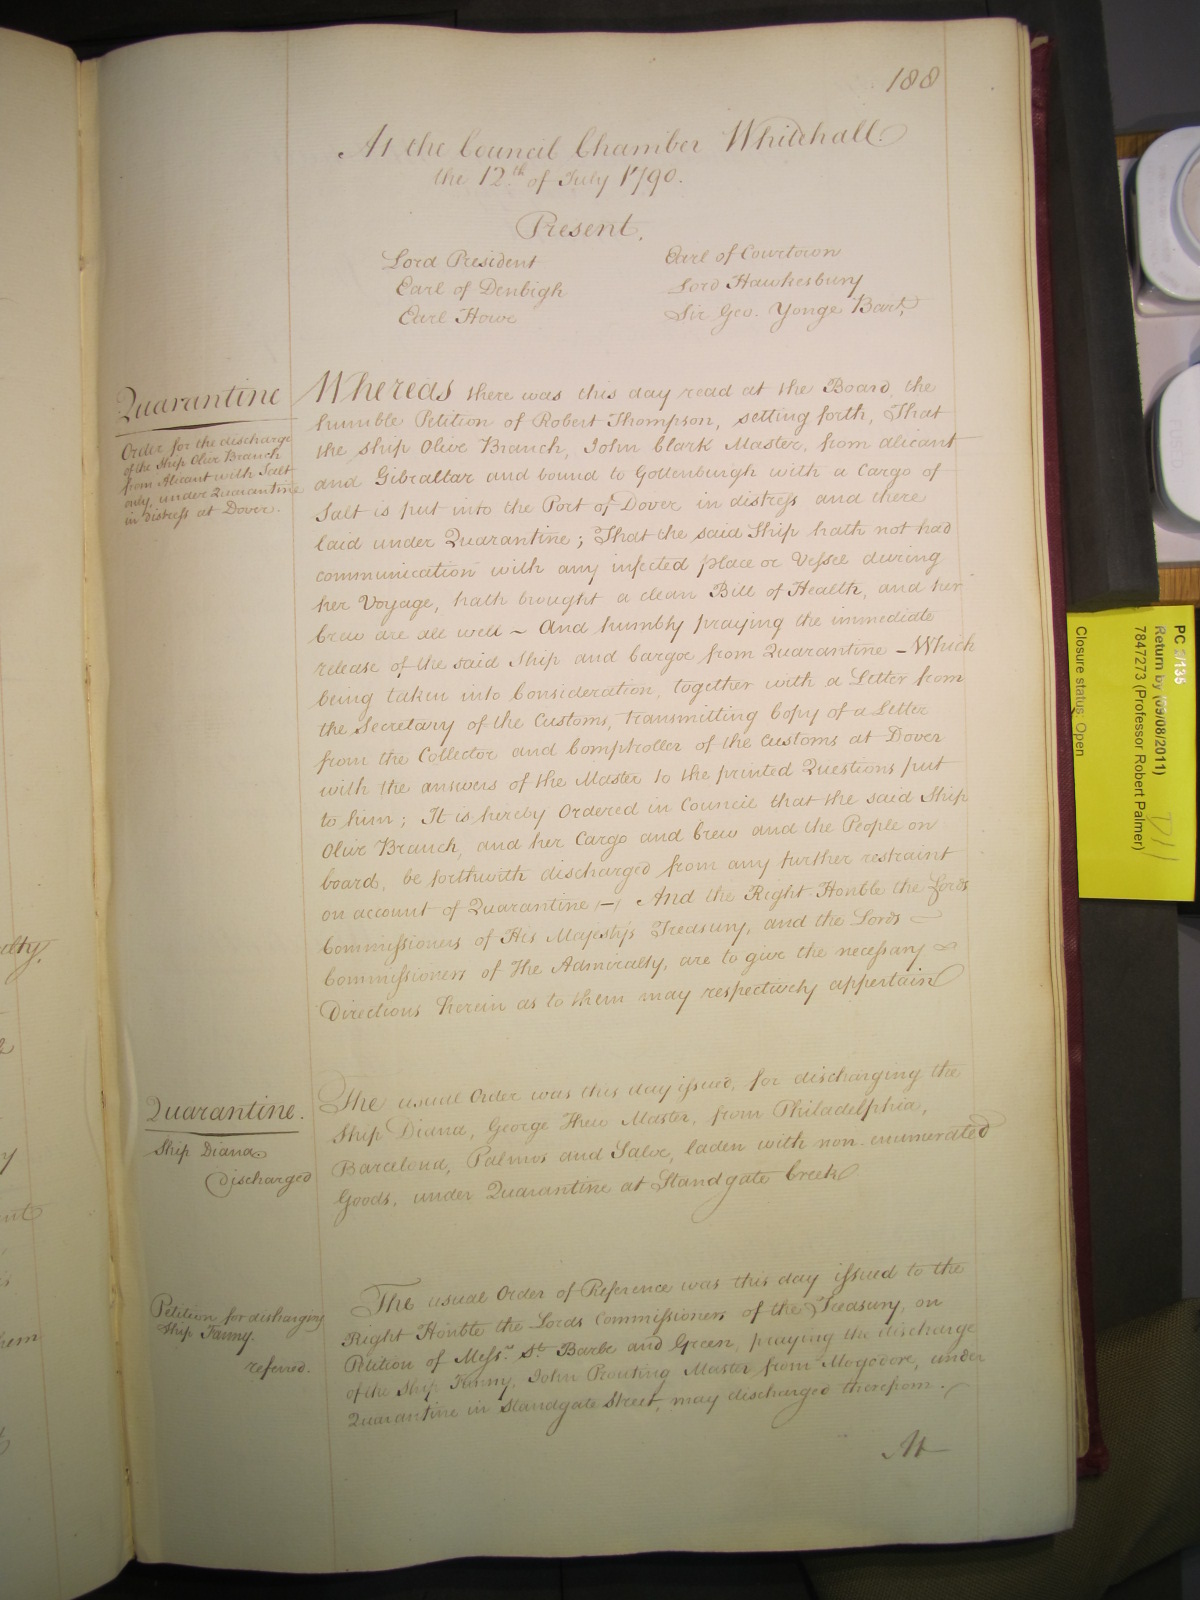 188
At the Council Chamber Whitehall.
the 12.th of July 1790.
Present.
Lord President
Earl of Denbigh
Earl Howe
Earl of Courtown
Lord Hawkesbury
Sir Geo. Yonge Bart.
Quarantine
Order for the discharge
of the Ship Olive Branch
from Alicant with Salt
only, under Quarantine
in distress at Dover.
Whereas there was this day read at the Board, the
humble Petition of Robert Thompson, setting forth, That
the ship Olive Branch, John Clark Master, from alicant
and Gibraltar and bound to Gottenburgh with a Cargo of
Salt is put into the Port of Dover in distress and there
laid under Quarantine; That the said Ship hath not had
communication with any infected place or Vessel during
her Voyage, hath brought a clean Bill of Health, and her
Crew are all well ~ And humbly praying the immediate
release of the said Ship and Cargoe from Quarantine - Which
being taken into Consideration, together with a Letter from
the Secretary of the Customs, transmitting Copy of a Letter
from the Collector and Comptroller of the Customs at Dover
with the answers of the Master to the printed Questions put
to him; It is hereby Ordered in Council that the said Ship
Olive Branch, and her Cargo and Crew and the People on
board, be forthwith discharged from any further restraint
on account of Quarantine, - And the Right Honble the Lords
Commissioners of His Majestys Treasury, and the Lords
Commissioners of the Admiralty, are to give the necessary
Directions herein as to them may respectively appertain
Quarantine.
Ship Diana
Discharged
The usual Order was this day issued, for discharging the
Ship Diana, George Thew Master, from Philadelphia,
Barcelona, Palmos and Salve, laden with non-enumerated
Goods, under Quarantine at Standgate Creek
Petition for discharging
Ship Fanny.
referred.
The usual Order of Reference was this day issued to the
Right Honble the Lords Commissioners of the Treasury, on
Petition of Messrs. St. Barbe and Green, praying the discharge
of the Ship Fanny, John Prouting Master from Mogodore, under
Quarantine in Standgate Street, may discharged therefrom.
At
PC 2/135
Return by (09/08/2011)
7847273 (Professor Robert Palmer)
Closure status: Open